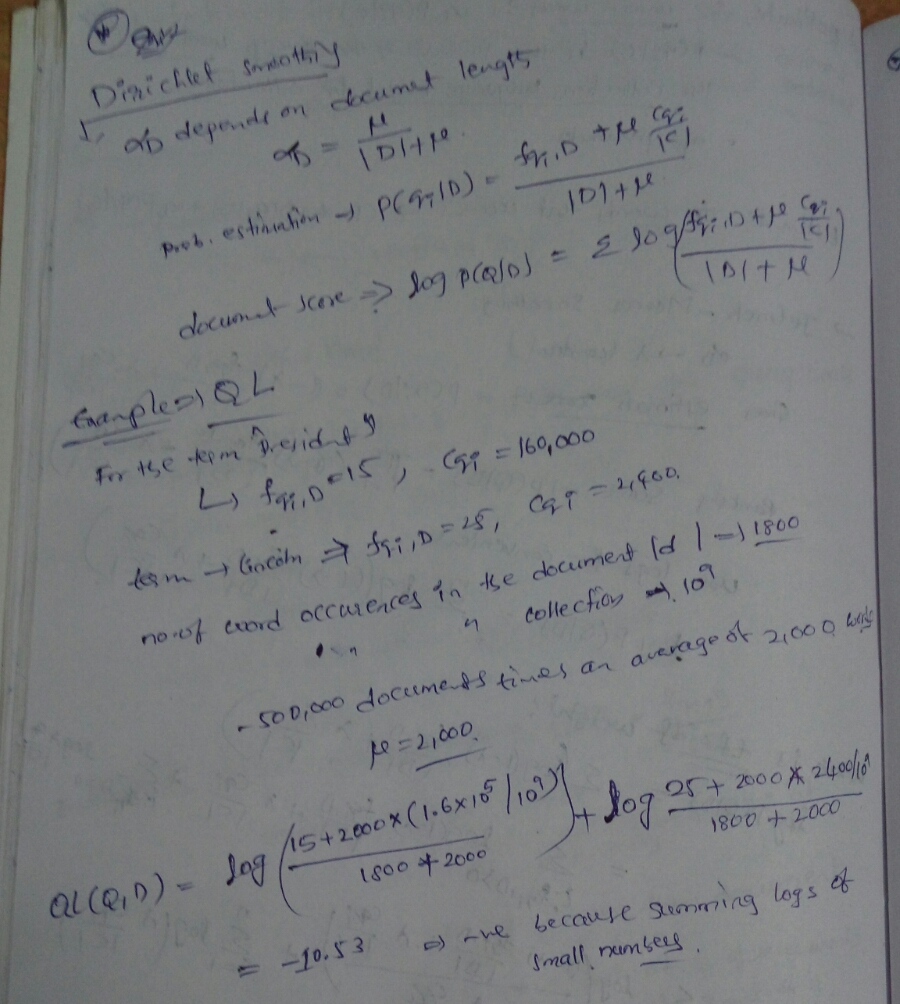 Dirichlet smoothing
↳ αD depends on document length
αD = μ / |D|+μ
prob. estimation → P(qi|D) = fqi,D + μ Cqi/|C| / |D|+μ
document score => log P(Q|D) = Σ log (fqi,D + μ Cqi/|C| / |D|+μ)
Example => QL
For the term "President"
↳ fqi,D = 15, Cqi = 160,000
term → Lincoln => fqi,D = 25, Cqi = 2,400.
no. of word occurences in the document |d| => 1800
" " " collection => 10⁹
- 500,000 documents times an average of 2,000 words
μ = 2,000.
QL(Q,D) = log (15+2000×(1.6×10⁵/10⁹) / 1800 + 2000) + log 25+2000×2400/10⁹ / 1800+2000
= -10.53 => -ve because summing logs of
small numbers.